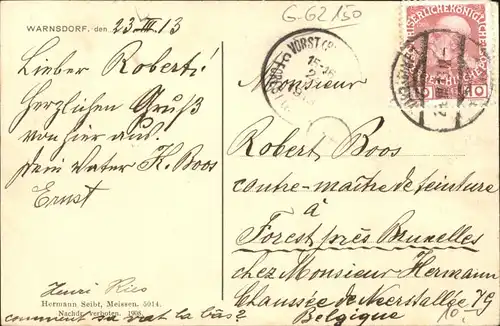 WARNSDORF, den 23 III 13
G-G2150
Lieber Robert:
Herzlichen Gruß
von hier aus.
Dein Vater K. Boos
Ernst
Henri Ries
Hermann Seibt, Meissen. 5014.
Nachdr. verboten. 1908.
comment sa vat la bàs?
VORST
FOREST
15-
Monsieur
Robert Boos
contre-maître de teinture
à
Forest près Bruxelles
chez Monsieur Hermann
Chaussée de Neerstallée 79
Belgique
10.-